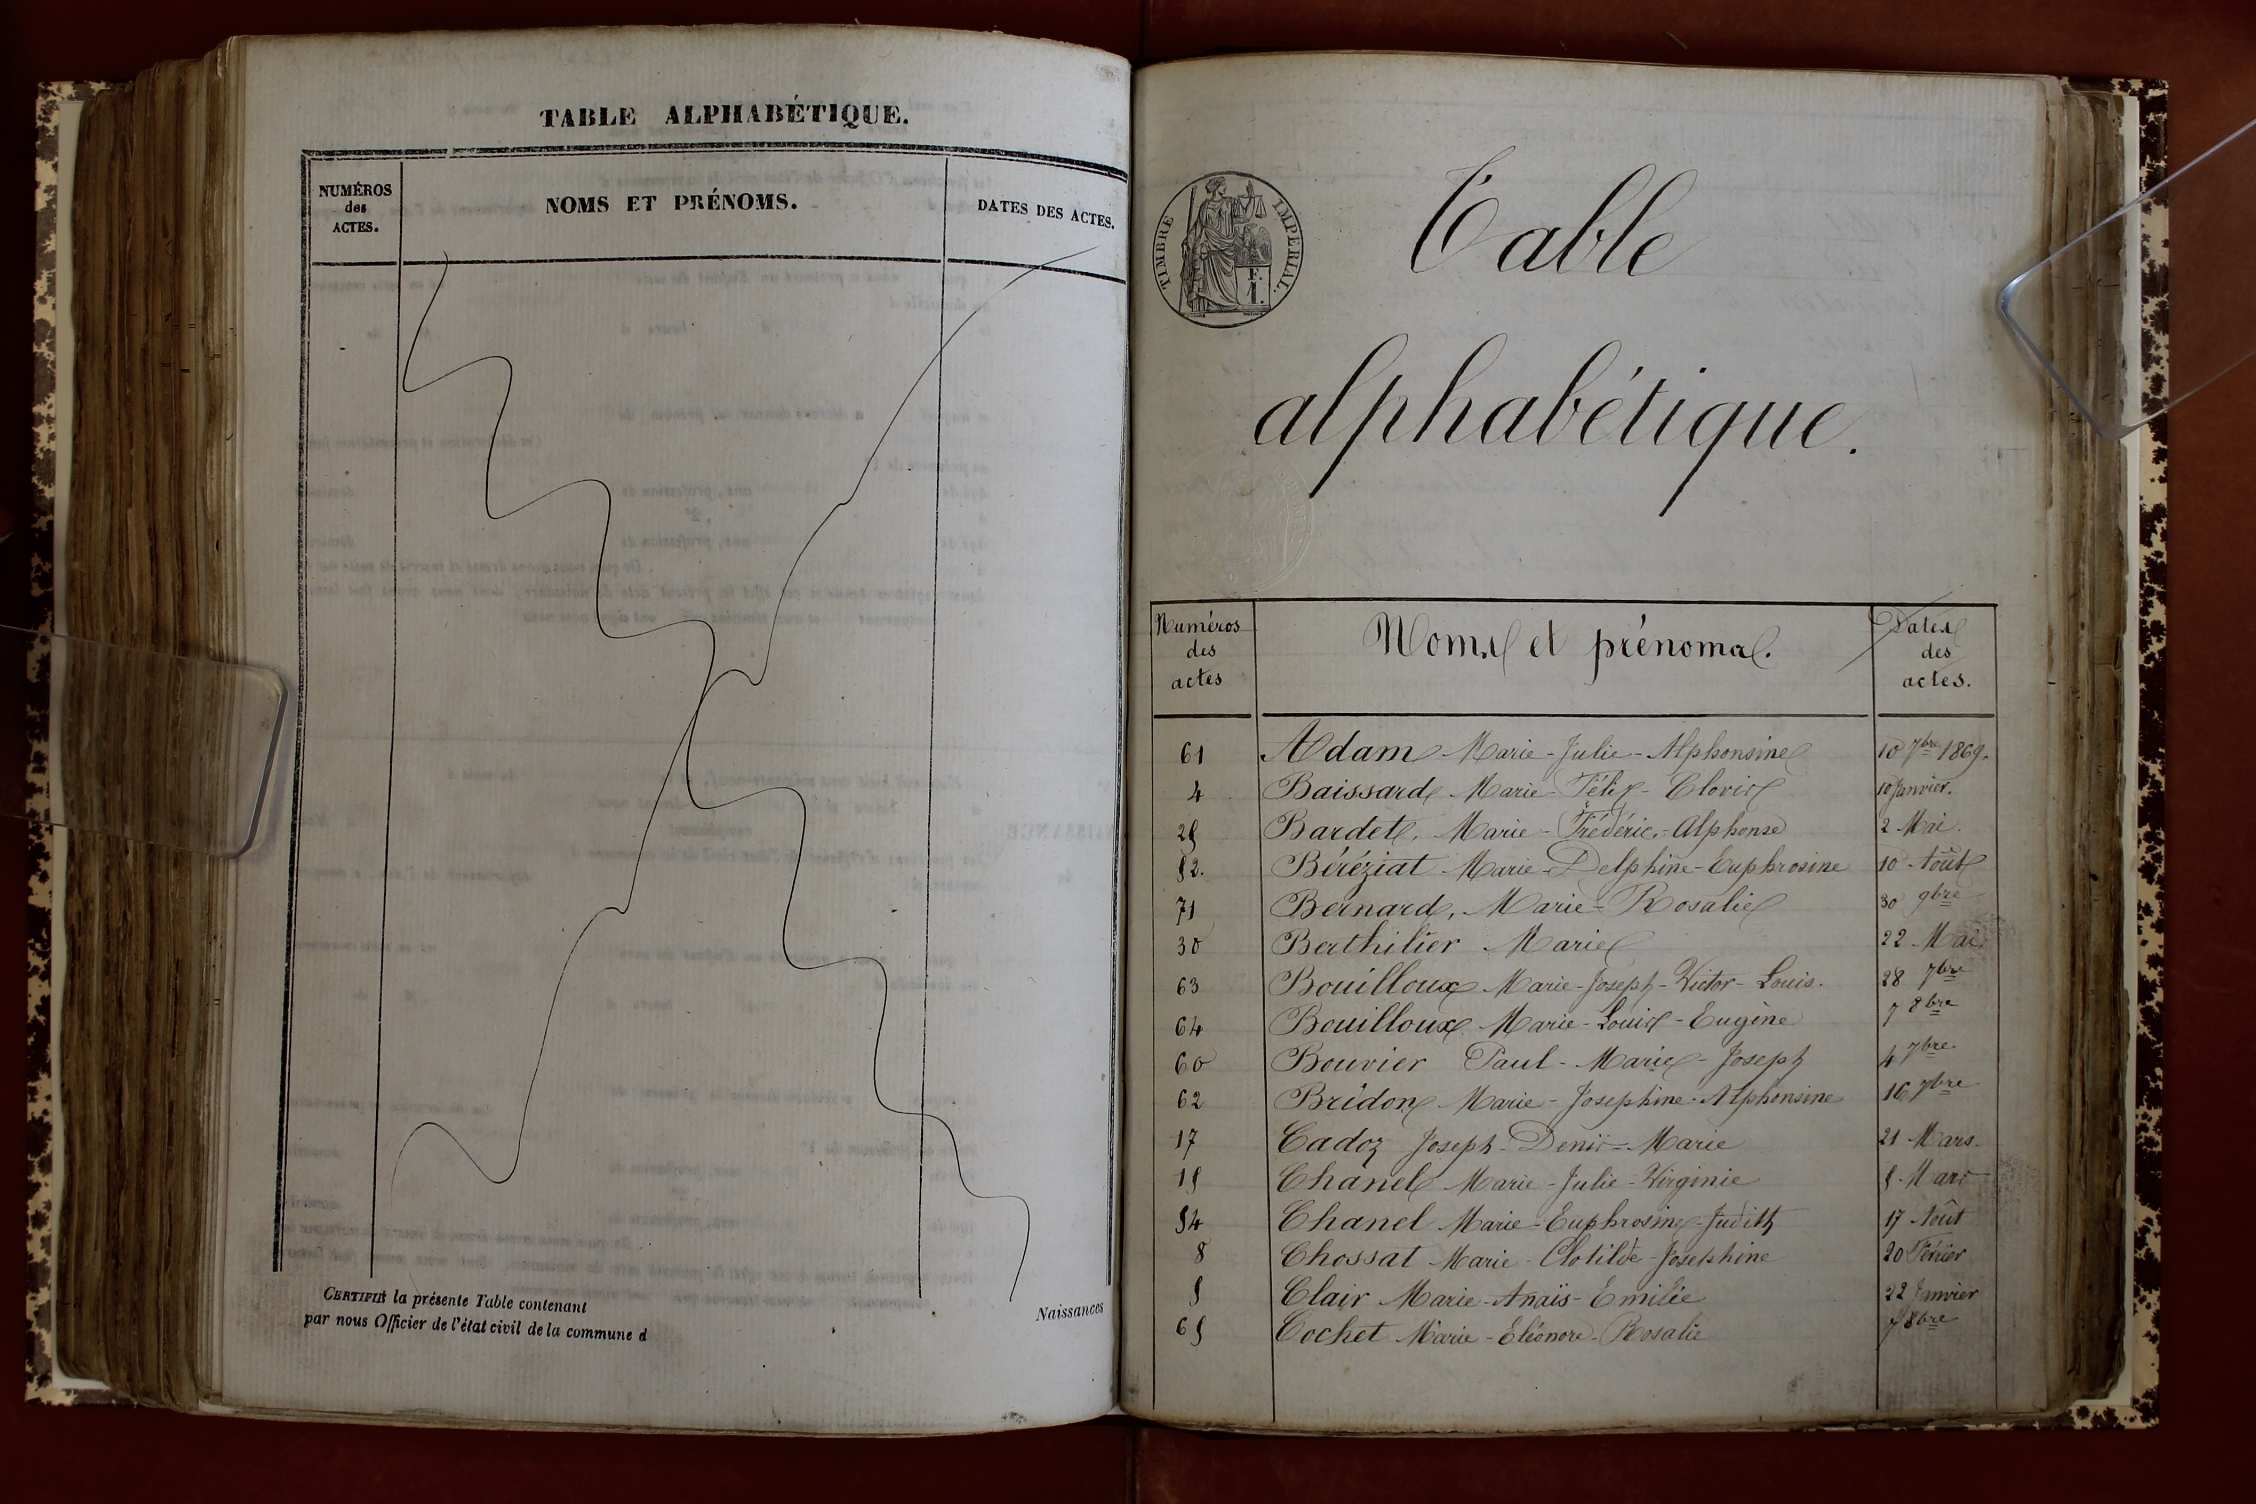 TABLE ALPHABÉTIQUE.
NUMÉROS
des
ACTES.
NOMS ET PRÉNOMS.
DATES DES ACTES.
CERTIFIÉ la présente Table contenant
Naissances
par nous Officier de l'état civil de la commune d
TIMBRE IMPERIAL.
E.
1.
Table
alphabétique.
Numéros
des
actes
Noms et prénoms.
Dates
des
actes.
61 Adam Marie-Julie-Alphonsine 10 7bre 1869.
4 Baissard Marie-Félix-Clovis 10 Janvier.
25 Bardet, Marie-Frédéric-Alphonse 2 Mai.
52. Béréziat Marie-Delphine-Euphrosine 10 Août
71 Bernard, Marie-Rosalie 30 9bre
30 Berthilier Marie 22 Mai
63 Bouilloux Marie-Joseph-Victor-Louis. 28 7bre
64 Bouilloux Marie-Louis-Eugène 7 8bre
60 Bouvier Paul-Marie-Joseph 4 7bre
62 Bridon Marie-Josephine-Alphonsine 16 7bre
17 Cadoz Joseph-Denis-Marie 21 Mars.
15 Chanel Marie-Julie-Virginie 5 Mars
54 Chanel Marie-Euphrosine-Judith 17 Août
8 Chossat Marie-Clotilde-Josephine 20 Février
5 Clair Marie-Anaïs-Emilie 22 Janvier
65 Cochet Marie-Eléonore-Rosalie 8bre